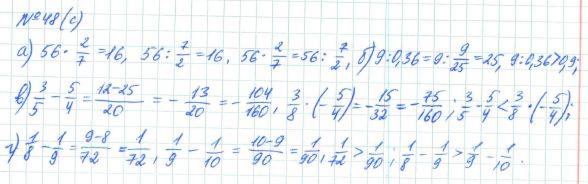 №48(с)
а) 56 · 2/7 = 16, 56 : 7/2 = 16, 56 · 2/7 = 56 : 7/2, б) 9 : 0,36 = 9 : 9/25 = 25, 9 : 0,36 > 0,9;
в) 3/5 - 5/4 = (12-25)/20 = - 13/20 = - 104/160, 3/8 · (- 5/4) = - 15/32 = - 75/160, 3/5 - 5/4 < 3/8 · (- 5/4);
г) 1/8 - 1/9 = (9-8)/72 = 1/72, 1/9 - 1/10 = (10-9)/90 = 1/90, 1/72 > 1/90; 1/8 - 1/9 > 1/9 - 1/10.